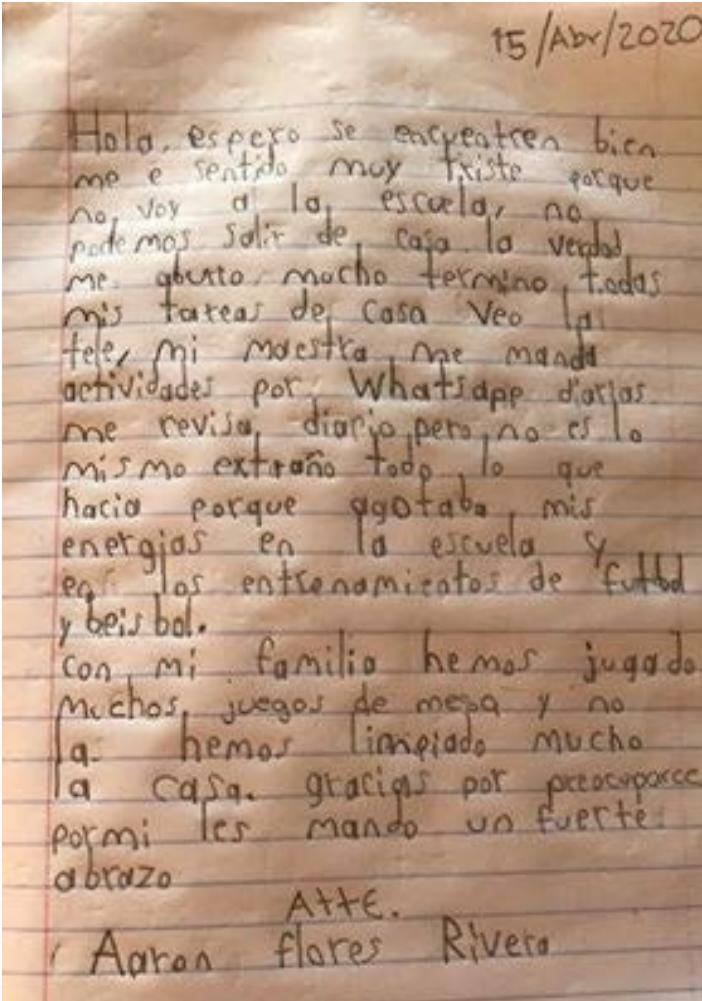 15/Abr/2020
Hola, espero se encuentren bien
me e sentido muy triste porque
no, voy a la, escuela, no
podemos salir de, casa la verdad
me aburro mucho termino, todas
mis tareas de, casa veo la
tele, mi maestra, me manda
actividades por, Whatsapp diarias
me revisa, diario, pero, no es lo
mismo extraño todo, lo que
hacia porque agotaba, mis
energias en la escuela y
en los entrenamientos de futbol
y beisbol.
con, mi familia hemos jugado
muchos, juegos de mesa y no
la hemos limpiado mucho
la casa. gracias por preocuparce
pormi les mando un fuerte
abrazo
Atte.
Aaron flores Rivera